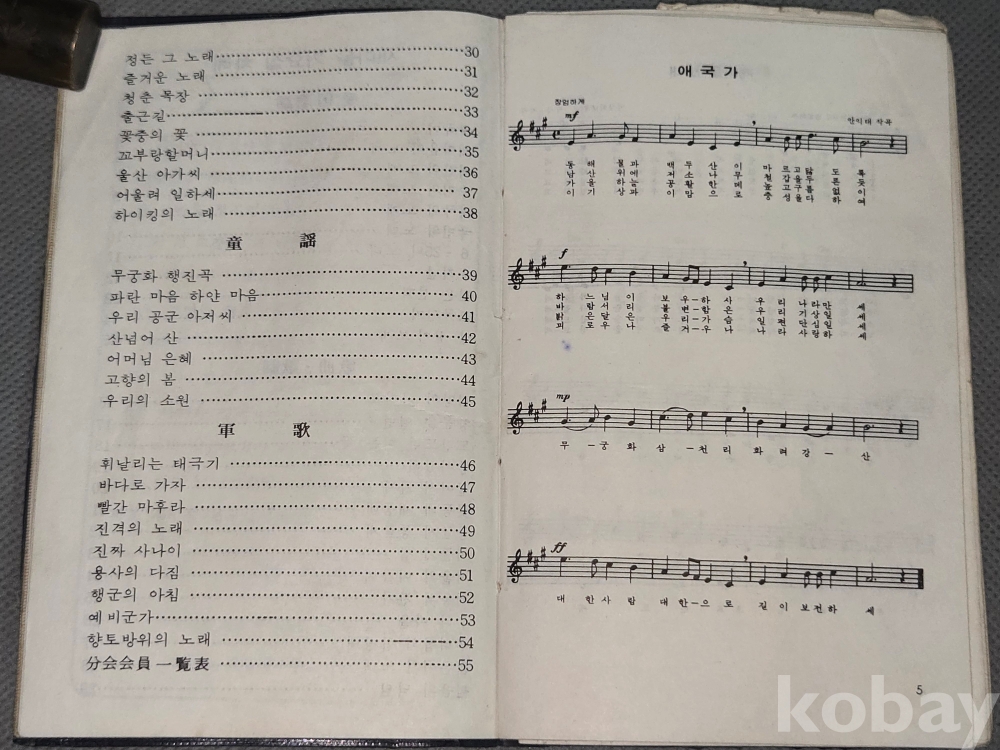 정든 그 노래 30
즐거운 노래 31
청춘 목장 32
출근길 33
꽃중의 꽃 34
꼬부랑할머니 35
울산 아가씨 36
어울려 일하세 37
하이킹의 노래 38
童 謠
무궁화 행진곡 39
파란 마음 하얀 마음 40
우리 공군 아저씨 41
산넘어 산 42
어머님 은혜 43
고향의 봄 44
우리의 소원 45
軍 歌
휘날리는 태극기 46
바다로 가자 47
빨간 마후라 48
진격의 노래 49
진짜 사나이 50
용사의 다짐 51
행군의 아침 52
예비군가 53
향토방위의 노래 54
分会会員一覧表 55
애국가
장엄하게
안익태 작곡
mf
동 해 물 과 백 두 산 이 마 르 고 닳 도 록
남 산 위 에 저 소 나 무 철 갑 을 두 른 듯
가 을 하 늘 공 활 한 데 높 고 구 름 없 이
이 기 상 과 이 맘 으 로 충 성 을 다 하 여
f
하 느 님 이 보 우-하 사 우 리 나 라 만 세
바 람 서 리 불 변-함 은 우 리 기 상 일 세
밝 은 달 은 우 리-가 슴 일 편 단 심 일 세
괴 로 우 나 즐 거-우 나 나 라 사 랑 하 세
mp
무 -궁 화 삼 -천 리 화 려 강 - 산
ff
대 한 사 람 대 한-으 로 길 이 보 전 하 세
5
kobay